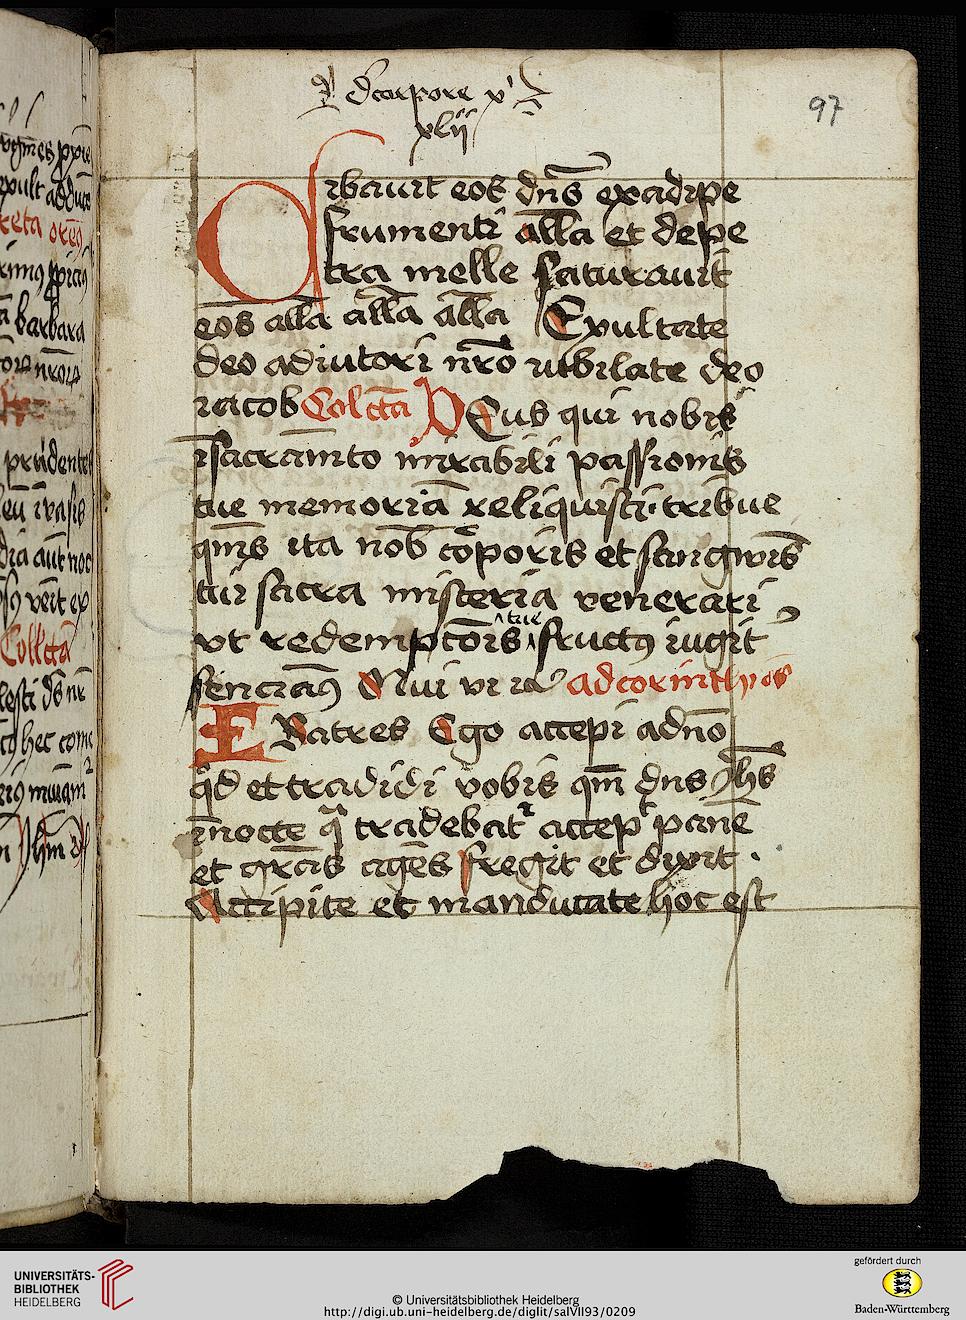 d'corpore xi
xlij
97
Cibauit eos dn̄s exadipe
frumenti all̄a et depe
tra melle saturauit
eos all̄a all̄a all̄a Exultate
deo adiutori nr̄o iubilate deo
iacob Collcta DEus qui nobis
ī sacram̄to mirabili passionis
tue memoriā reliquisti tribue
qm̄s ita nob̄ corporis et sangwis
tui sacra misteria venerari
vt redempcōis tue fructꝰ iugit̄
senciamꝰ Qui vi adcorinthyos
FRatres Ego accepi adn̄o
qd et tradidi vobis qm̄ dns Jhs̄
īnocte q̄ tradebatr accept panē
et grās agēs fregit et dixit .
Accipite et manducate hoc est
barbara
Collcta
UNIVERSITÄTS-
BIBLIOTHEK
HEIDELBERG
© Universitätsbibliothek Heidelberg
http://digi.ub.uni-heidelberg.de/diglit/salVII93/0209
gefördert durch
Baden-Württemberg